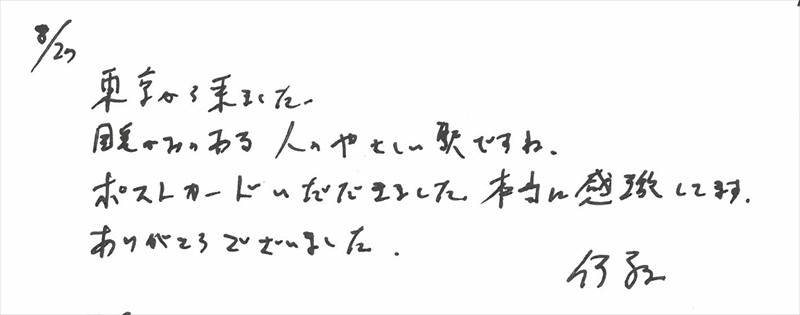 8/27
東京から来ました。
あの ある 人の やさしい 歌ですね。
ポストカードいただきました。本当に感激してます。
ありがとうございました。